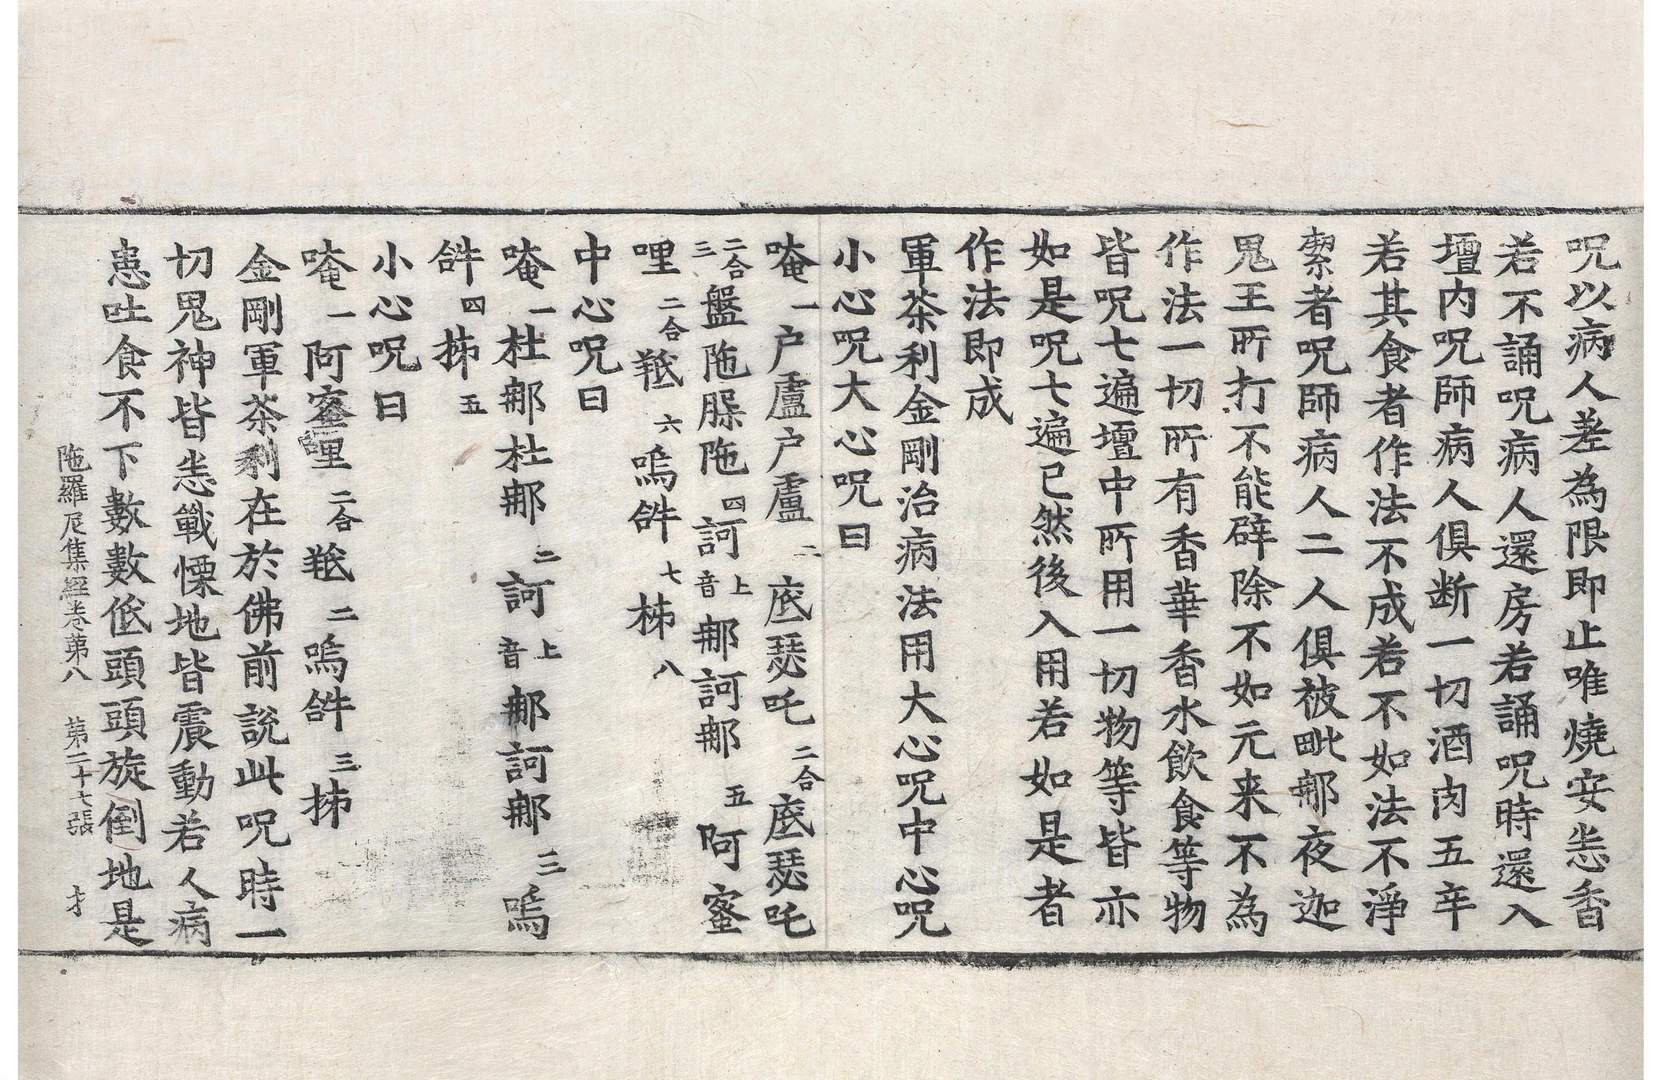 呪以病人差為限即止唯燒安悉香
若不誦呪病人還房若誦呪時還入
壇内呪師病人俱断一切酒肉五辛
若其食者作法不成若不如法不淨
㓗者呪師病人二人俱被毗那夜迦
鬼王所打不能辟除不如元来不為
作法一切所有香華香水飲食等物
皆呪七遍壇中所用一切物等皆亦
如是呪七遍已然後入用若如是者
作法即成
軍茶利金剛治病法用大心呪中心呪
小心呪大心呪曰
唵一户盧户盧二底瑟吒二合底瑟吒
二合三盤陁䐧陁四訶上音那訶那五阿蜜
哩二合羝六嗚𤙖七㭲八
中心呪曰
唵一杜那杜那二訶上音那訶那三嗚
𤙖四㭲五
小心呪曰
唵一阿蜜哩二合羝二嗚𤙖三㭲
金剛軍茶利在於佛前說此呪時一
切鬼神皆悉戰慄地皆震動若人病
患吐食不下數數低頭頭旋倒地是
陁羅尼集經卷第八 第二十七張 才